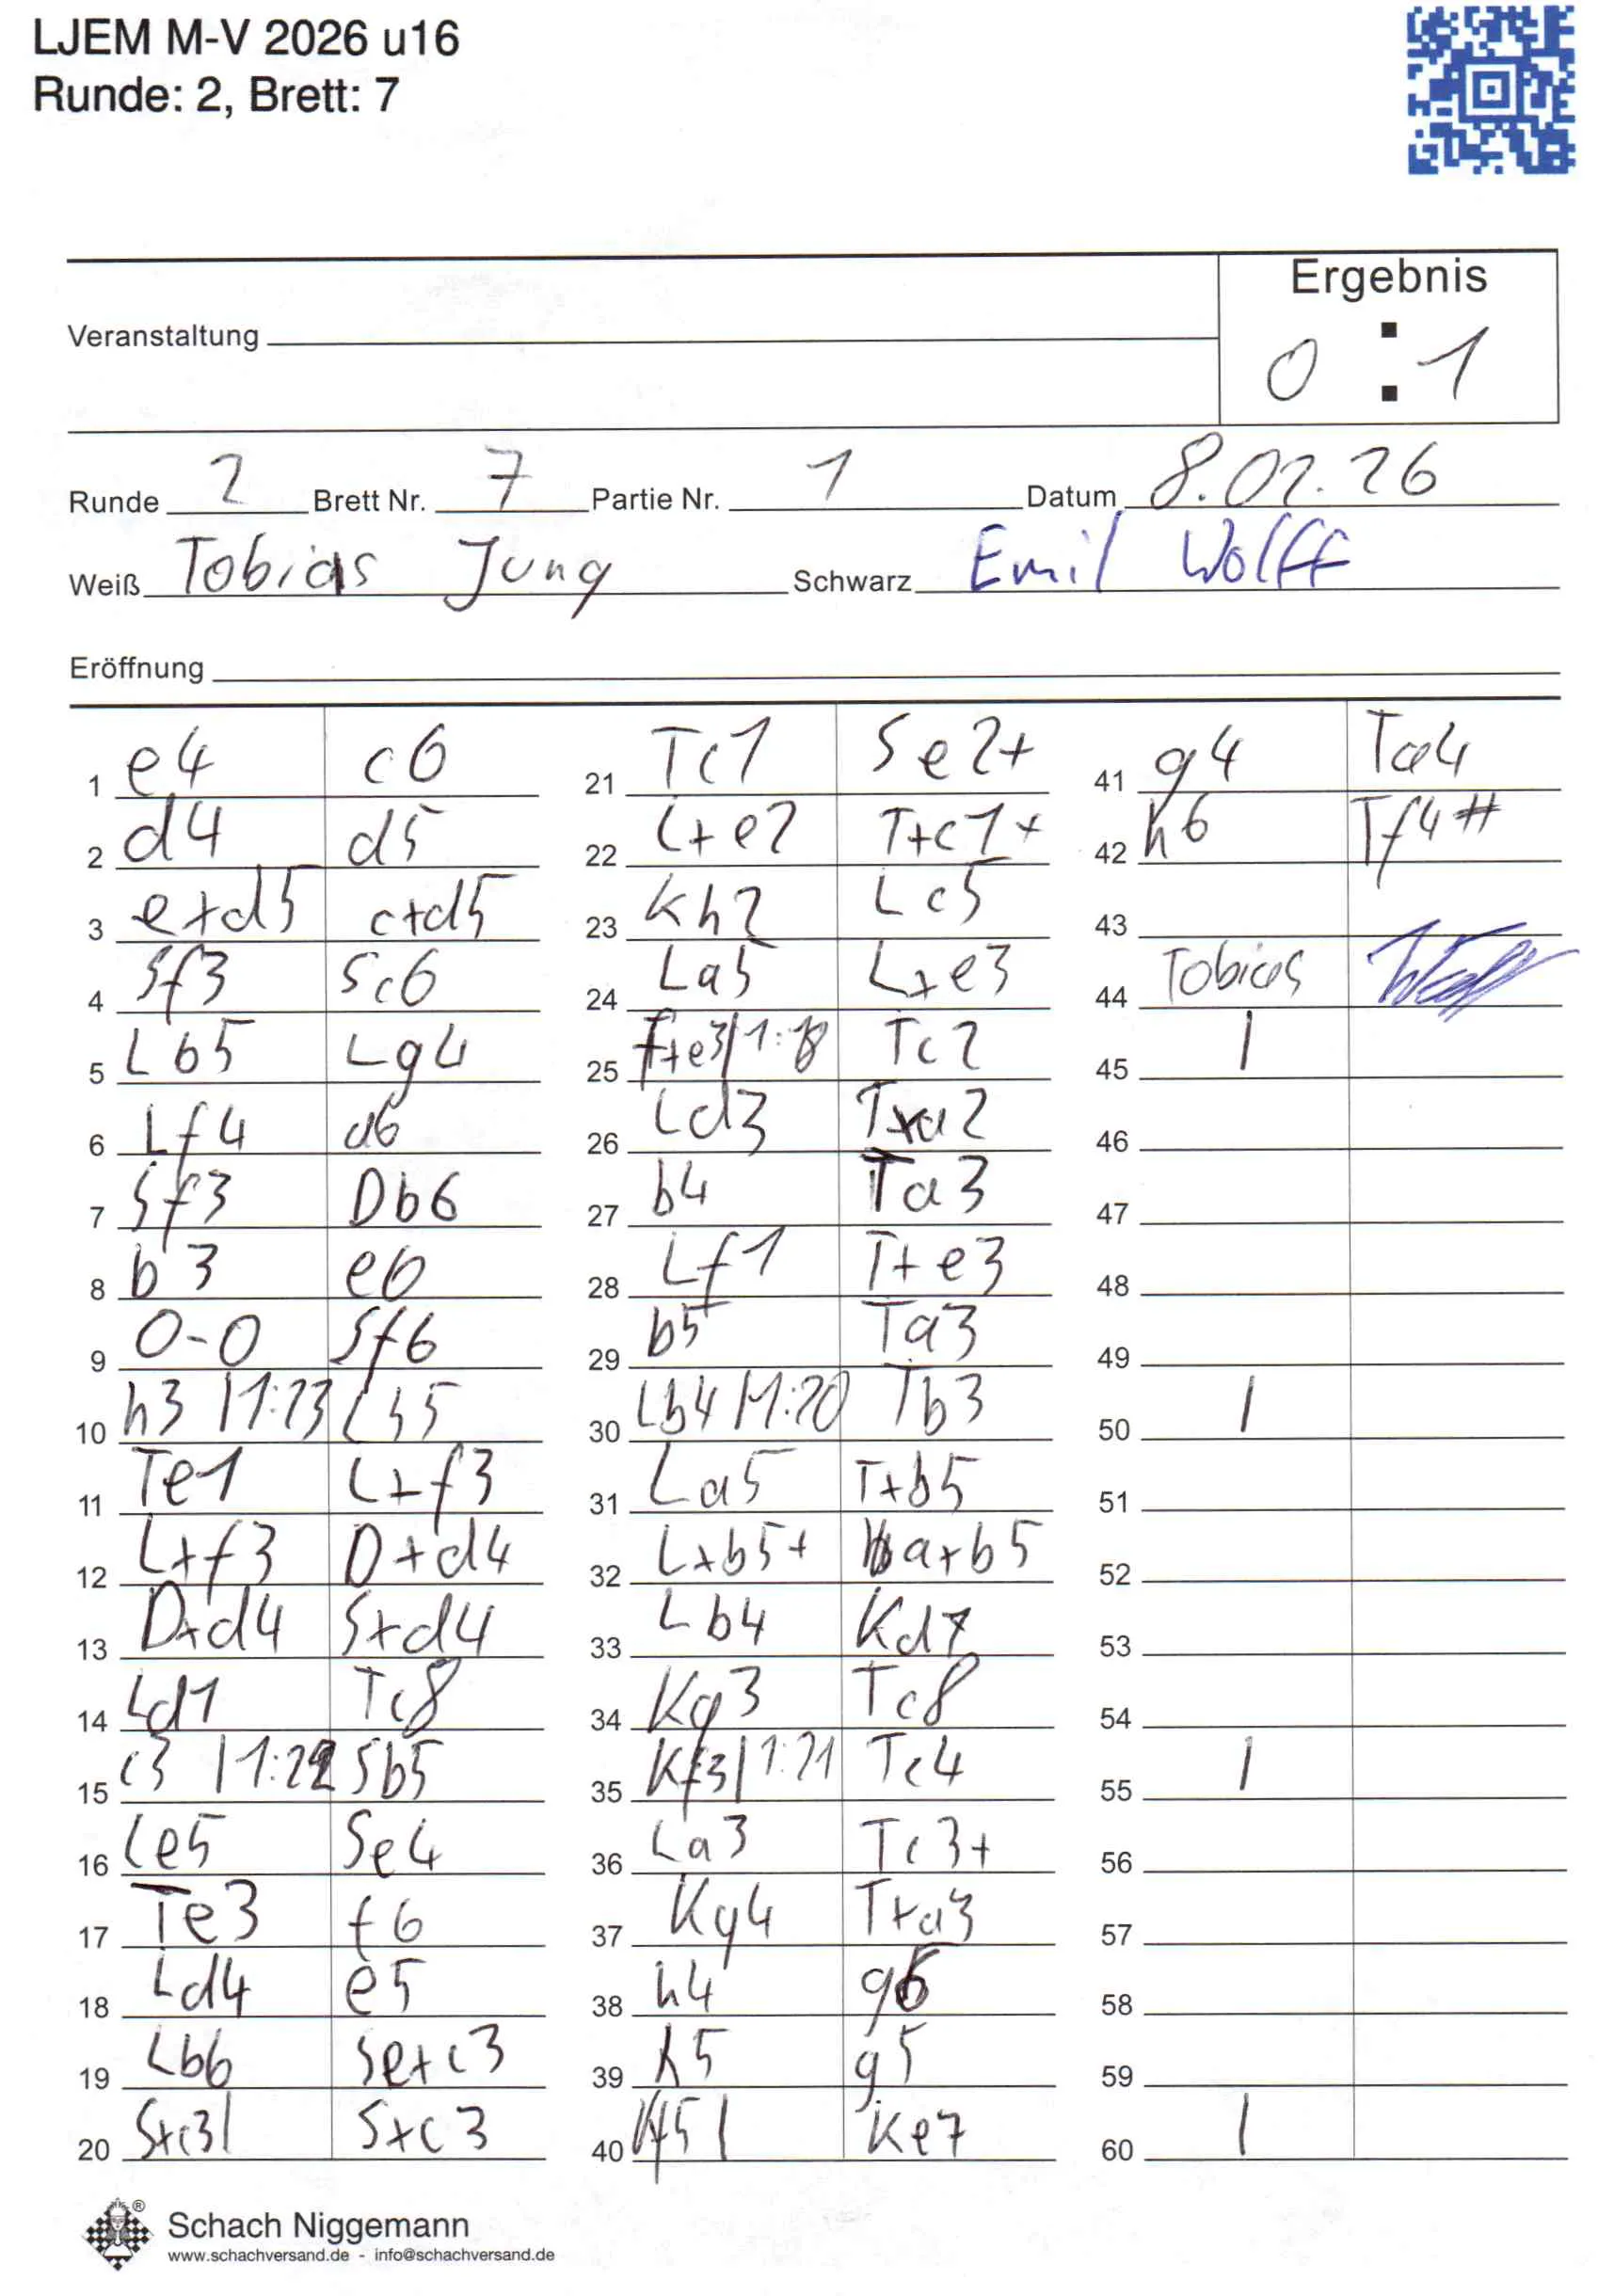 LJEM M-V 2026 u16
Runde: 2, Brett: 7
Ergebnis
Veranstaltung
0 : 1
Runde 2 Brett Nr. 7 Partie Nr. 1 Datum 8.02.26
Weiß Tobias Jung Schwarz Emil Wolff
Eröffnung
1 e4 c6
2 d4 d5
3 e+d5 c+d5
4 Sf3 Sc6
5 Lb5 Lg4
6 Lf4 a6
7 Sf3 Db6
8 b3 e6
9 0-0 Sf6
10 h3 |1:23 Lh5
11 Te1 L+f3
12 L+f3 D+d4
13 D+d4 S+d4
14 Ld1 Tc8
15 c3 |1:22 Sb5
16 Le5 Se4
17 Te3 f6
18 Ld4 e5
19 Lb6 Se+c3
20 Sxc3| Sxc3
21 Tc1 Se2+
22 L+e2 T+c1+
23 Kh2 Lc5
24 La5 L+e3
25 f+e3|1:18 Tc2
26 Ld3 Txa2
27 b4 Ta3
28 Lf1 T+e3
29 b5 Ta3
30 Lb4 |1:20 Tb3
31 La5 T+b5
32 L+b5+ a+b5
33 Lb4 Kd7
34 Kg3 Tc8
35 Kf3|1:21 Tc4
36 La3 Tc3+
37 Kg4 T+a3
38 h4 g6
39 h5 g5
40 Kf5| Ke7
41 g4 Ta4
42 h6 Tf4#
43
44 Tobias
45 |
46
47
48
49
50 |
51
52
53
54
55 |
56
57
58
59
60 |
Schach Niggemann
www.schachversand.de - info@schachversand.de